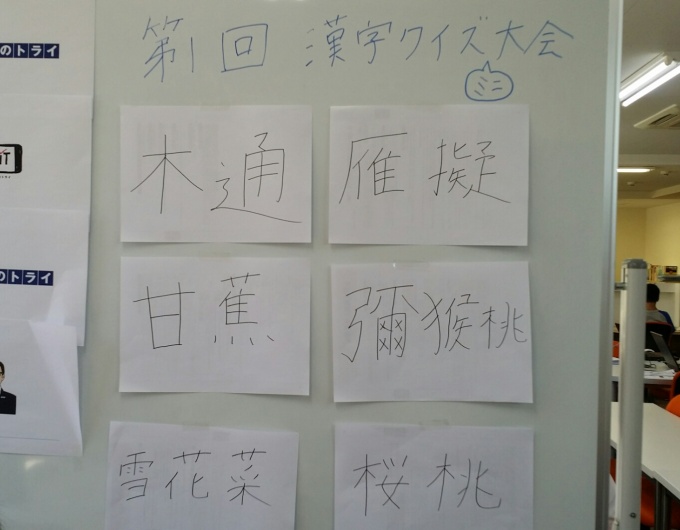 第1回 漢字クイズ大会
ミニ
木通
雁擬
甘蕉
彌猴桃
雪花菜
桜桃
のトライ
IT
のトライ